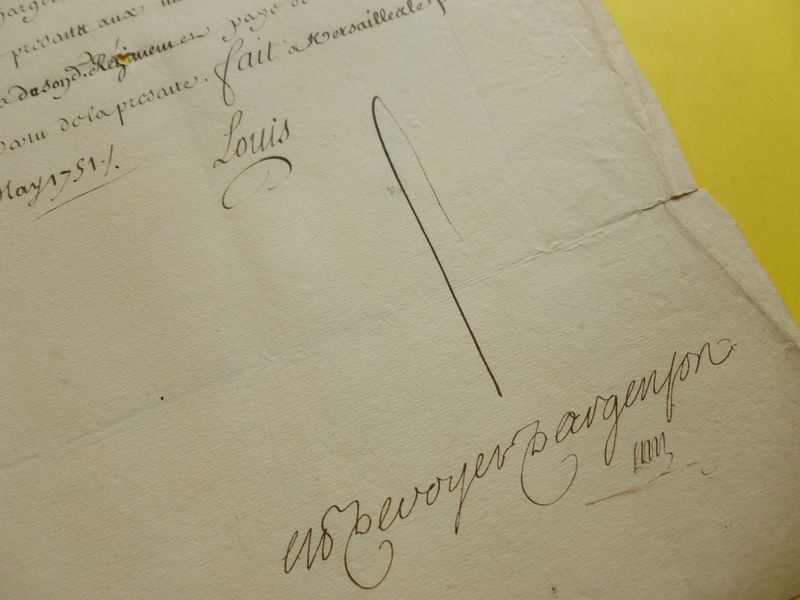 presante aux
dud. Régiment en payé de
vertu de la presante. fait a Versailles le
May 1751 /. Louis
de voyer d'argenson